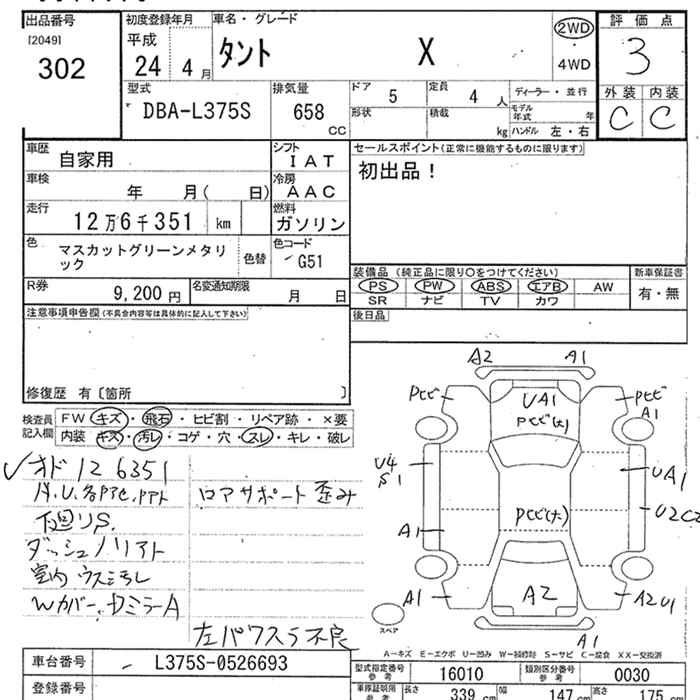 出品番号
[2049]
302
初度登録年月
平成
24 4月
車名・グレード
タント X
2WD
4WD
評価点
3
外装 内装
C C
型式
DBA-L375S
排気量
658
CC
ドア 5
定員 4 人
形状
積載 kg
ディーラー・並行
モデル年式 年
ハンドル 左・右
車歴 自家用
シフト IAT
車検 年 月( 日)
冷房 AAC
走行 12万6千351 km
燃料 ガソリン
色 マスカットグリーンメタリック
色替
色コード G51
R券 9,200円
名変通知期限 月 日
セールスポイント(正常に機能するものに限ります)
初出品!
装備品 (純正品に限り○をつけてください)
PS PW ABS エアB AW
SR ナビ TV カワ
新車保証書
有・無
後日品
注意事項申告欄(不具合内容等は具体的に記入して下さい)
修復歴 有〔箇所 〕
検査員記入欄
FW キズ・飛石・ヒビ割・リペア跡・×要
内装 キズ・汚レ・コゲ・穴・スレ・キレ・破レ
オド126351
下廻りS
室内ウス汚レ
ロアサポート歪み
左パワスラ不良
A2 A1
UA1
A1
U4
S1
UA1
U2C2
A1
A1
A2
A2U1
A1
スペア
A-キズ E-エクボ U-凹み W-補修跡 S-サビ C-腐食 XX-交換済
車台番号 L375S-0526693
登録番号
型式指定番号 参考 16010
類別区分番号 参考 0030
車庫証明用 参考 長さ 339 cm 幅 147 cm 高さ 175 cm